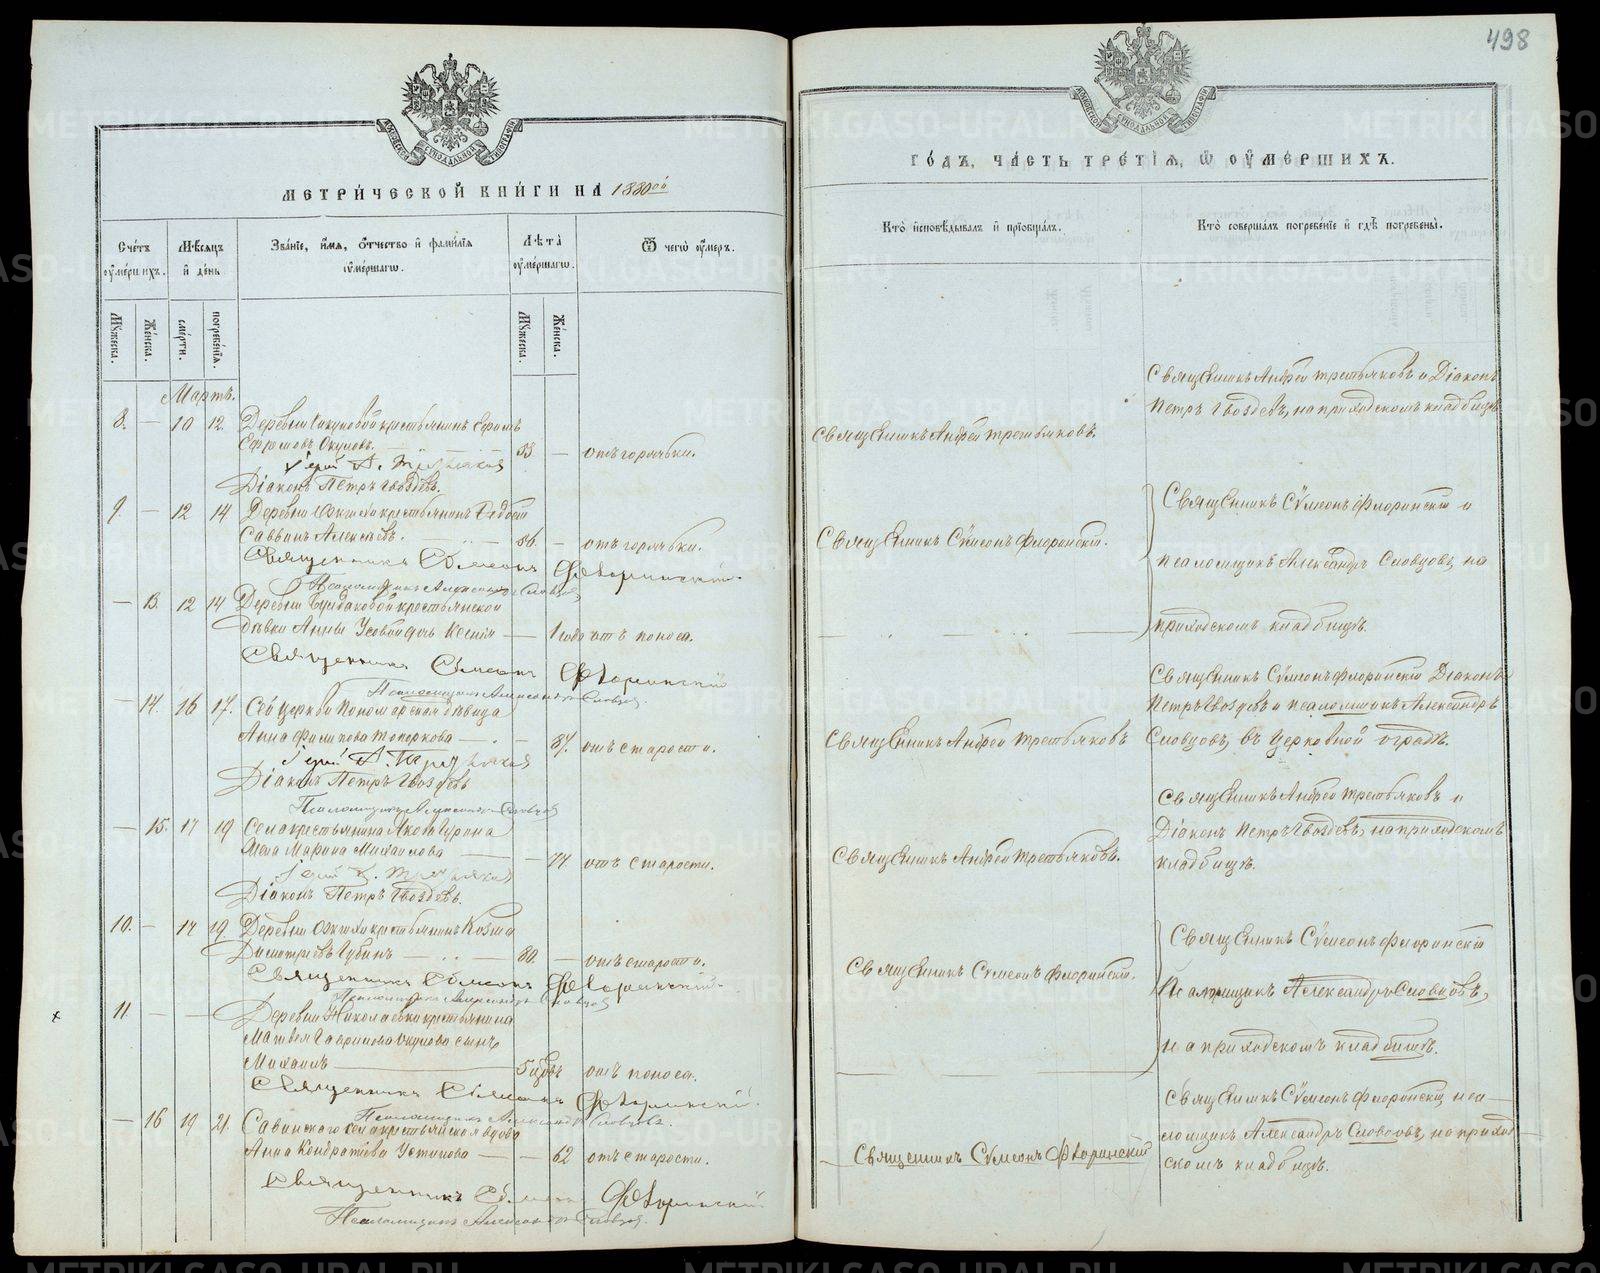 498
МЕТРИЧЕСКОЙ КНИГИ НА 1880ый
ГОДЪ, ЧАСТЬ ТРЕТІЯ, Ѿ ОУМЕРШИХЪ.
МОСКОВСКОЙ СѴНОДАЛЬНОЙ ТИПОГРАФІИ
Счетъ оумершихъ.
Мѣсяцъ и день
Званіе, имя, отчество и фамилія оумершагѡ.
Лѣта оумершагѡ.
Ѿ чегѡ оумеръ.
Кто исповѣдывалъ и пріобщалъ.
Кто совершалъ погребеніе и гдѣ погребены.
Мужеска. Женска. смерти. погребенія. Мужеска. Женска.
Мартъ.
8. — 10 12. Деревни крестьянинъ Ефимъ
Ефремовъ Окуловъ. — 53. — отъ горячки.
Священникъ Андрей Третьяковъ.
Священникъ Андрей Третьяковъ и Діаконъ
Петръ Гвоздевъ, на приходскомъ кладбищѣ
Іерей А. Третьяковъ
Діаконъ Петръ Гвоздевъ.
9. — 12 14 Деревни крестьянинъ
Саввинъ Алексѣевъ. — 56. — отъ горячки.
Священникъ Сѵмеонъ Флоринскій.
Священникъ Сѵмеонъ Флоринскій и
псаломщикъ Александръ Словцовъ, на
приходскомъ кладбищѣ.
Священникъ Сѵмеонъ Флоринскій.
Псаломщикъ Александръ Словцовъ
— 13. 12 14 Деревни крестьянской
дѣвки Анны дочь Ксенія — 1 года отъ поноса.
Священникъ Сѵмеонъ Флоринскій
Псаломщикъ Александръ Словцовъ.
— 14. 16 17. Сей церкви пономарская дѣвица
Анна Филипова Топоркова — 87. отъ старости.
Священникъ Андрей Третьяковъ
Священникъ Сѵмеонъ Флоринскій Діаконъ
Петръ Гвоздевъ и псаломщикъ Александръ
Словцовъ, въ церковной оградѣ.
Іерей А. Третьяковъ
Діаконъ Петръ Гвоздевъ
Псаломщикъ Александръ Словцовъ
— 15. 17 19 Села крестьянина
жена Марина Михаилова — 77 отъ старости.
Священникъ Андрей Третьяковъ.
Священникъ Андрей Третьяковъ и
Діаконъ Петръ Гвоздевъ, на приходскомъ
кладбищѣ.
Іерей А. Третьяковъ
Діаконъ Петръ Гвоздевъ.
10. — 17 19. Деревни крестьянинъ Козма
Димитріевъ Губинъ — 80. — отъ старости.
Священникъ Сѵмеонъ Флоринскій.
Священникъ Сѵмеонъ Флоринскій
Псаломщикъ Александръ Словцовъ,
на приходскомъ кладбищѣ.
Священникъ Сѵмеонъ Флоринскій.
Псаломщикъ Александръ Словцовъ
х 11. — — Деревни Николаевки крестьянина
Матвея Гаврилова Окулова сынъ
Михаилъ — 5 отъ поноса.
Священникъ Сѵмеонъ Флоринскій.
Псаломщикъ Александръ Словцовъ.
— 16 19 21. Савинскаго села крестьянская вдова
Анна Кондратіева Устинова — 62 отъ старости.
Священникъ Сѵмеонъ Флоринскій
Священникъ Сѵмеонъ Флоринскій, пса-
ломщикъ Александръ Словцовъ, на приход-
скомъ кладбищѣ.
Священникъ Сѵмеонъ Флоринскій.
Псаломщикъ Александръ Словцовъ.
METRIKI.GASO-URAL.RU